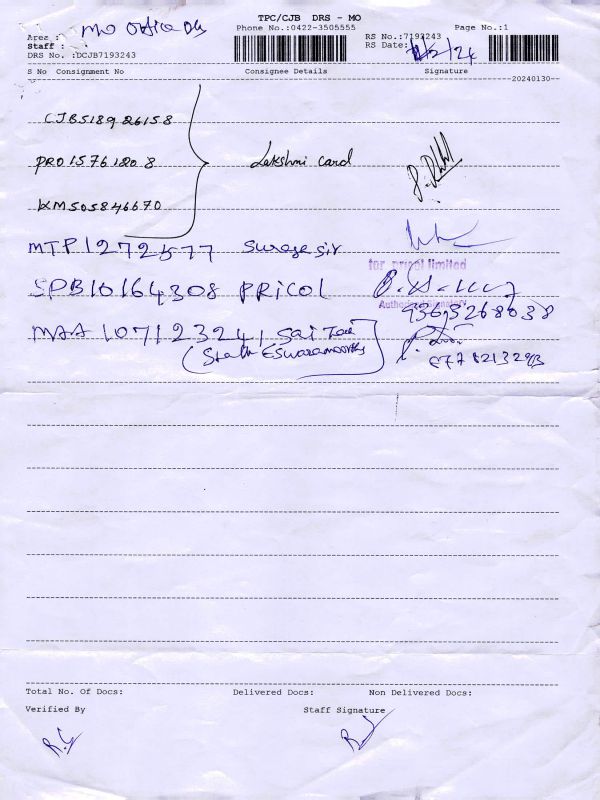 TPC/CJB DRS - MO
Area : MO Office
Phone No.:0422-3505555
Page No.:1
Staff :
RS No.:7193243
DRS No. :DCJB7193243
RS Date: /24
S No Consignment No Consignee Details Signature
20240130
CJB518926158
PRO15761808 Lakshmi Card
KM505846670
MTP1272577 Surege Sir
for pricol limited
SPB10164308 PRICOL
Authorised Signatory
9363268038
MAA 107123241 Sai
Eswaramoorthy
8778213293
Total No. Of Docs: Delivered Docs: Non Delivered Docs:
Verified By Staff Signature